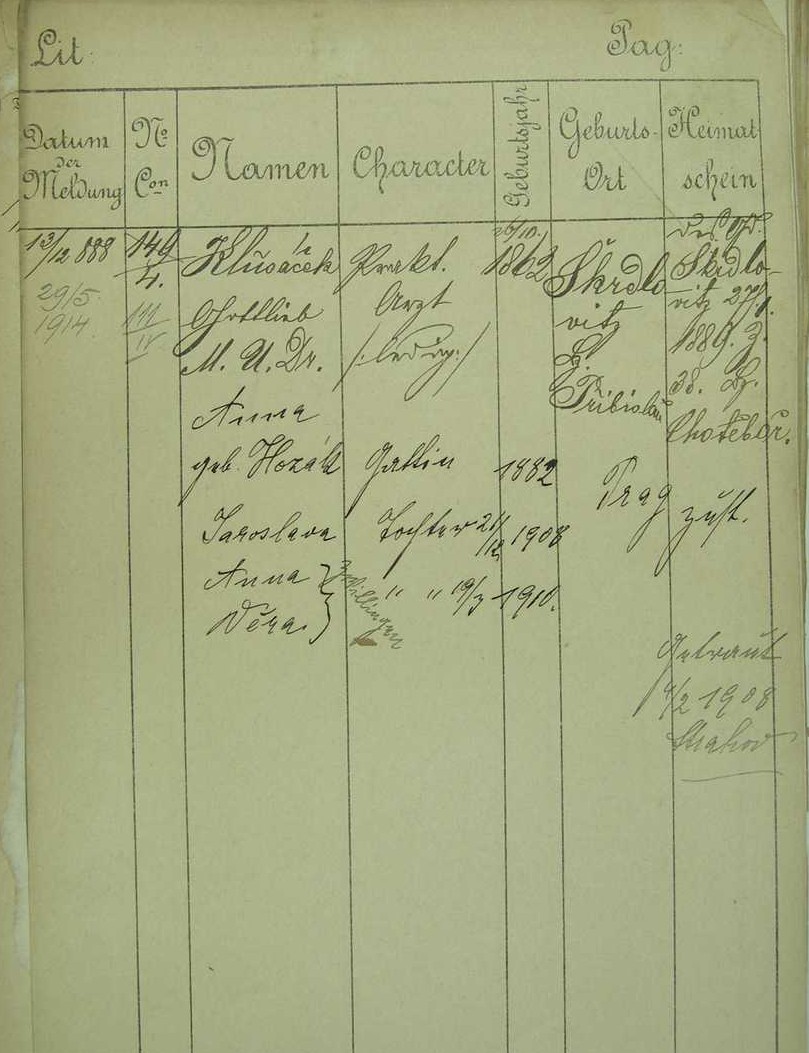 Lit:
Pag:
Datum der Meldung
No Con
Namen
Character
Geburtsjahr
Geburts-Ort
Heimatschein
13/2 888
149/4.
Klusáček
Prakt.
26/10.
1862
Škrdlo
vitz
B.
Přibislau
29/5
1914
111/IV
Gottlieb
M. U. Dr.
Arzt
/:ledig:/
Skrdlo-
vitz 27/1.
1889. Z.
38. Bz.
Chotěboř.
Anna
geb. Hozák
Gattin
1882
Prag
zust.
Jaroslava
Tochter
21/12 1908
Anna
Věra
Zwillinge
" "
19/3 1910.
Getraut
9/2 1908
Strahov